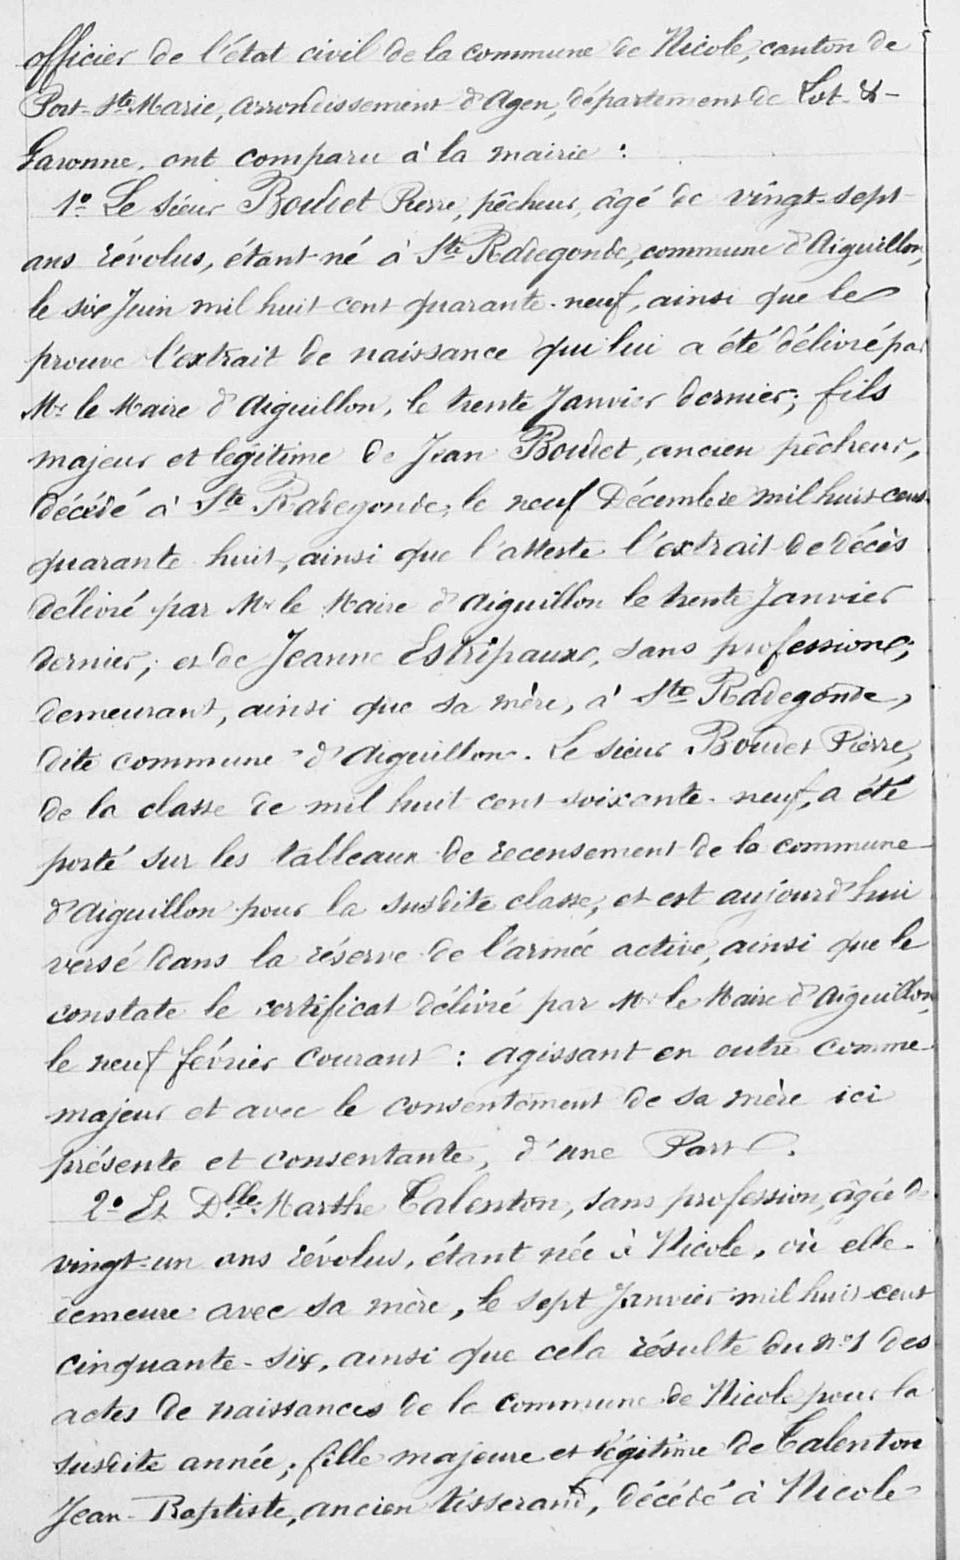 officier de l'état civil de la commune de Nicole, canton de
Port-Ste Marie, arrondissement d'Agen, département de Lot-&-
Garonne, ont comparu à la mairie :
1º Le sieur Boudet Pierre, pêcheur, âgé de vingt-sept
ans révolus, étant né à Ste Radegonde, commune d'Aiguillon,
le six Juin mil huit cent quarante-neuf, ainsi que le
prouve l'extrait de naissance qui lui a été délivré par
Mr le Maire d'Aiguillon, le trente Janvier dernier; fils
majeur et légitime de Jean Boudet, ancien pêcheur,
décédé à Ste Radegonde, le neuf Décembre mil huit cent
quarante huit, ainsi que l'atteste l'extrait de décès
délivré par Mr le Maire d'Aiguillon le trente Janvier
dernier; et de Jeanne Estripaux, sans profession,
demeurant, ainsi que sa mère, à Ste Radegonde,
dite commune d'Aiguillon. Le sieur Boudet Pierre,
de la classe de mil huit cent soixante-neuf, a été
porté sur les tableaux de recensement de la commune
d'Aiguillon pour la susdite classe, et est aujourd'hui
versé dans la réserve de l'armée active, ainsi que le
constate le certificat délivré par Mr le Maire d'Aiguillon,
le neuf février courant : agissant en outre comme
majeur et avec le consentement de sa mère ici
présente et consentante, d'une Part.
2º Et Dlle Marthe Talenton, sans profession, âgée de
vingt-un ans révolus, étant née à Nicole, où elle
demeure avec sa mère, le sept Janvier mil huit cent
cinquante-six, ainsi que cela résulte du nº 1 des
actes de naissances de la commune de Nicole pour la
susdite année; fille majeure et légitime de Talenton
Jean-Baptiste, ancien tisserand, décédé à Nicole